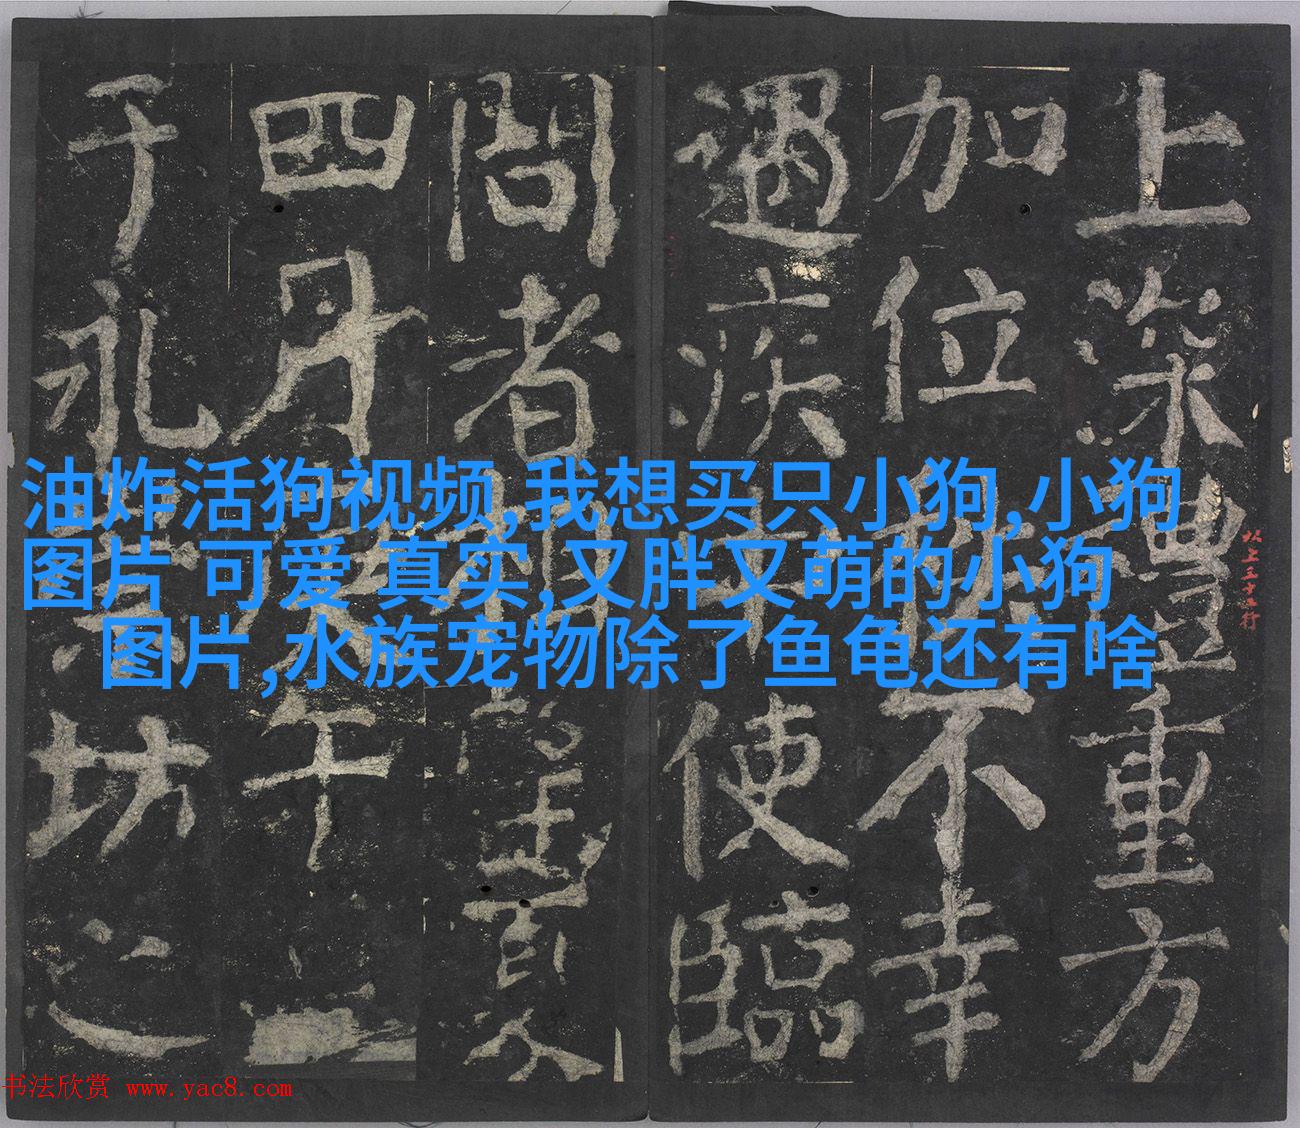 油炸活狗视频,我想买只小狗,小狗
图片 可爱 真实,又胖又萌的小狗
图片,水族宠物除了鱼龟还有啥
上深禮重方
加位不幸
遇疾使臨
問者夏
四月午
于永坊之
以上行
书法欣赏 www.yac8.com